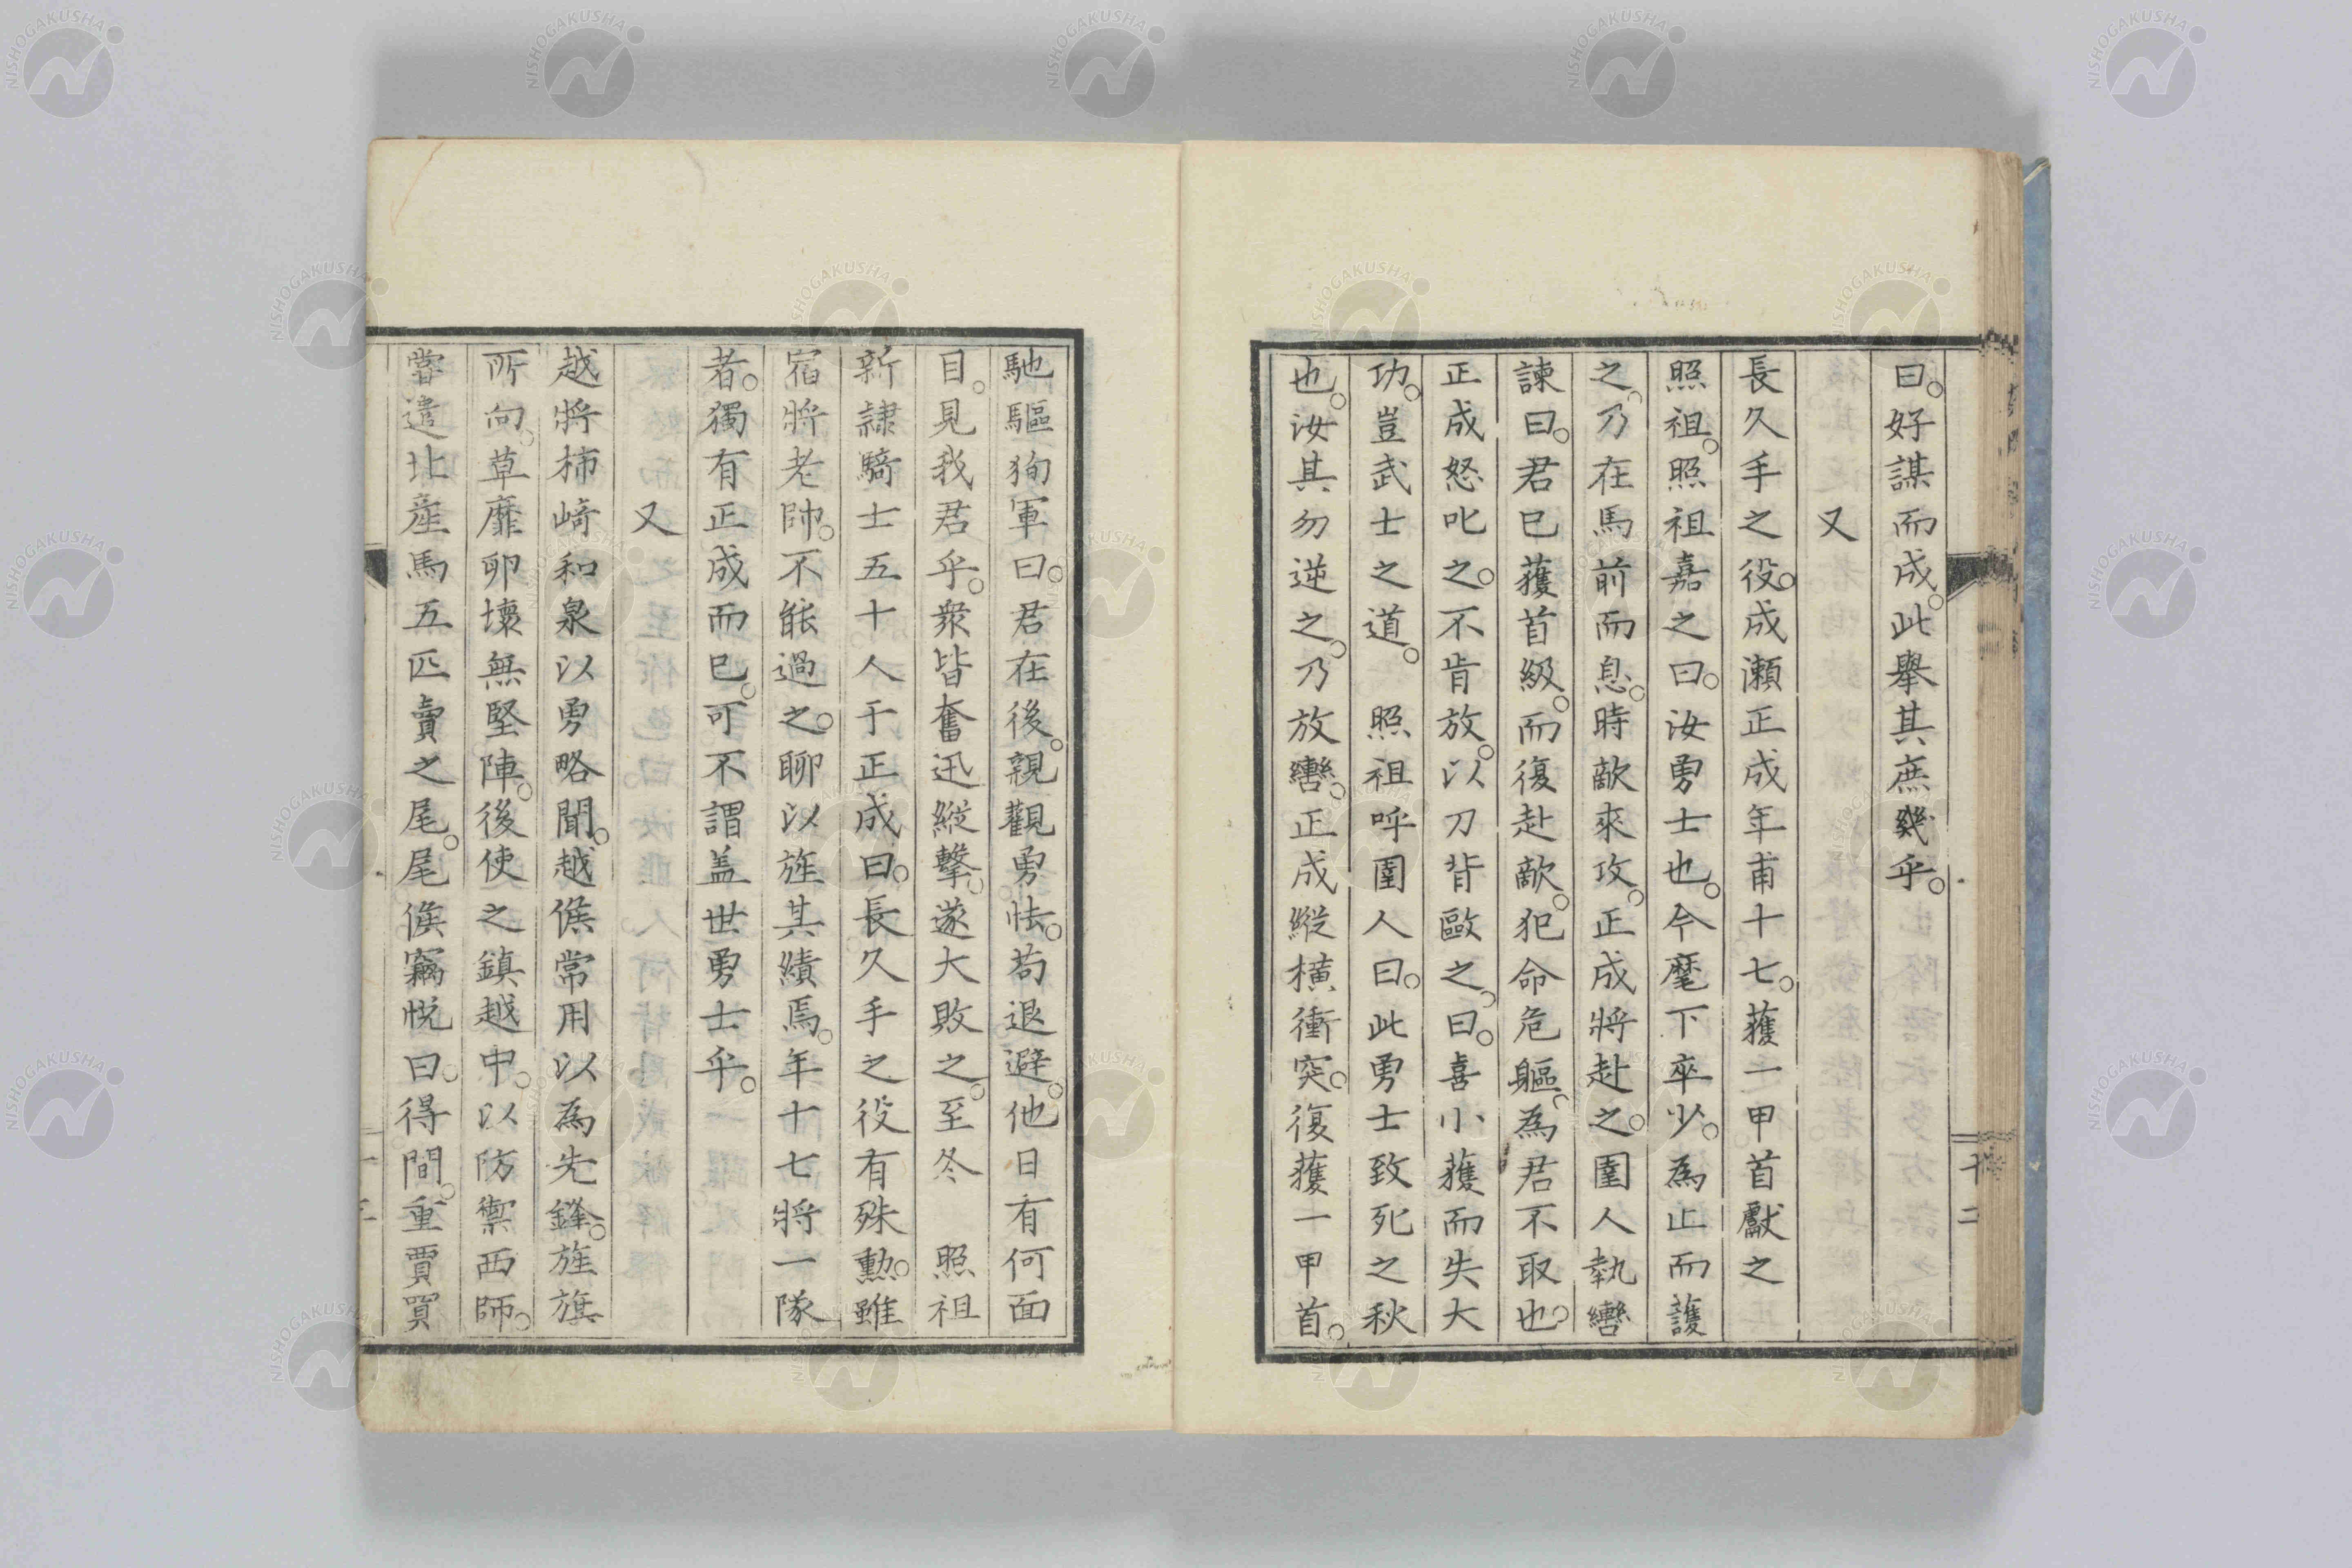 曰。好謀而成。此擧其庶幾乎。
又
長久手之役。成瀬正成年甫十七。獲一甲首獻之
照祖。照祖嘉之曰。汝勇士也。今麾下卒少。為止而護
之。乃在馬前而息。時敵來攻。正成將赴之。圉人執轡
諫曰。君已獲首級。而復赴敵。犯命危軀。為君不取也。
正成怒叱之。不肯放。以刀背歐之。曰。喜小獲而失大
功。豈武士之道。　照祖呼圉人曰。此勇士致死之秋
也。汝其勿逆之。乃放轡。正成縱橫衝突。復獲一甲首。
十二
馳驅狥軍曰。君在後。親觀勇怯。苟退避。他日有何面
目。見我君乎。衆皆奮迅縱擊。遂大敗之。至冬　照祖
新隷騎士五十人于正成曰。長久手之役有殊勲。雖
宿將老帥。不能過之。聊以旌其績焉。年十七將一隊
者。獨有正成而已。可不謂盖世勇士乎。
又
越將柿崎和泉以勇略聞。越侯常用以為先鋒。旌旗
所向。草靡卵壞無堅陣。後使之鎮越中。以防禦西師。
嘗遣北産馬五匹賣之尾。尾侯竊悅曰。得間。重賈買
NISHOGAKUSHA